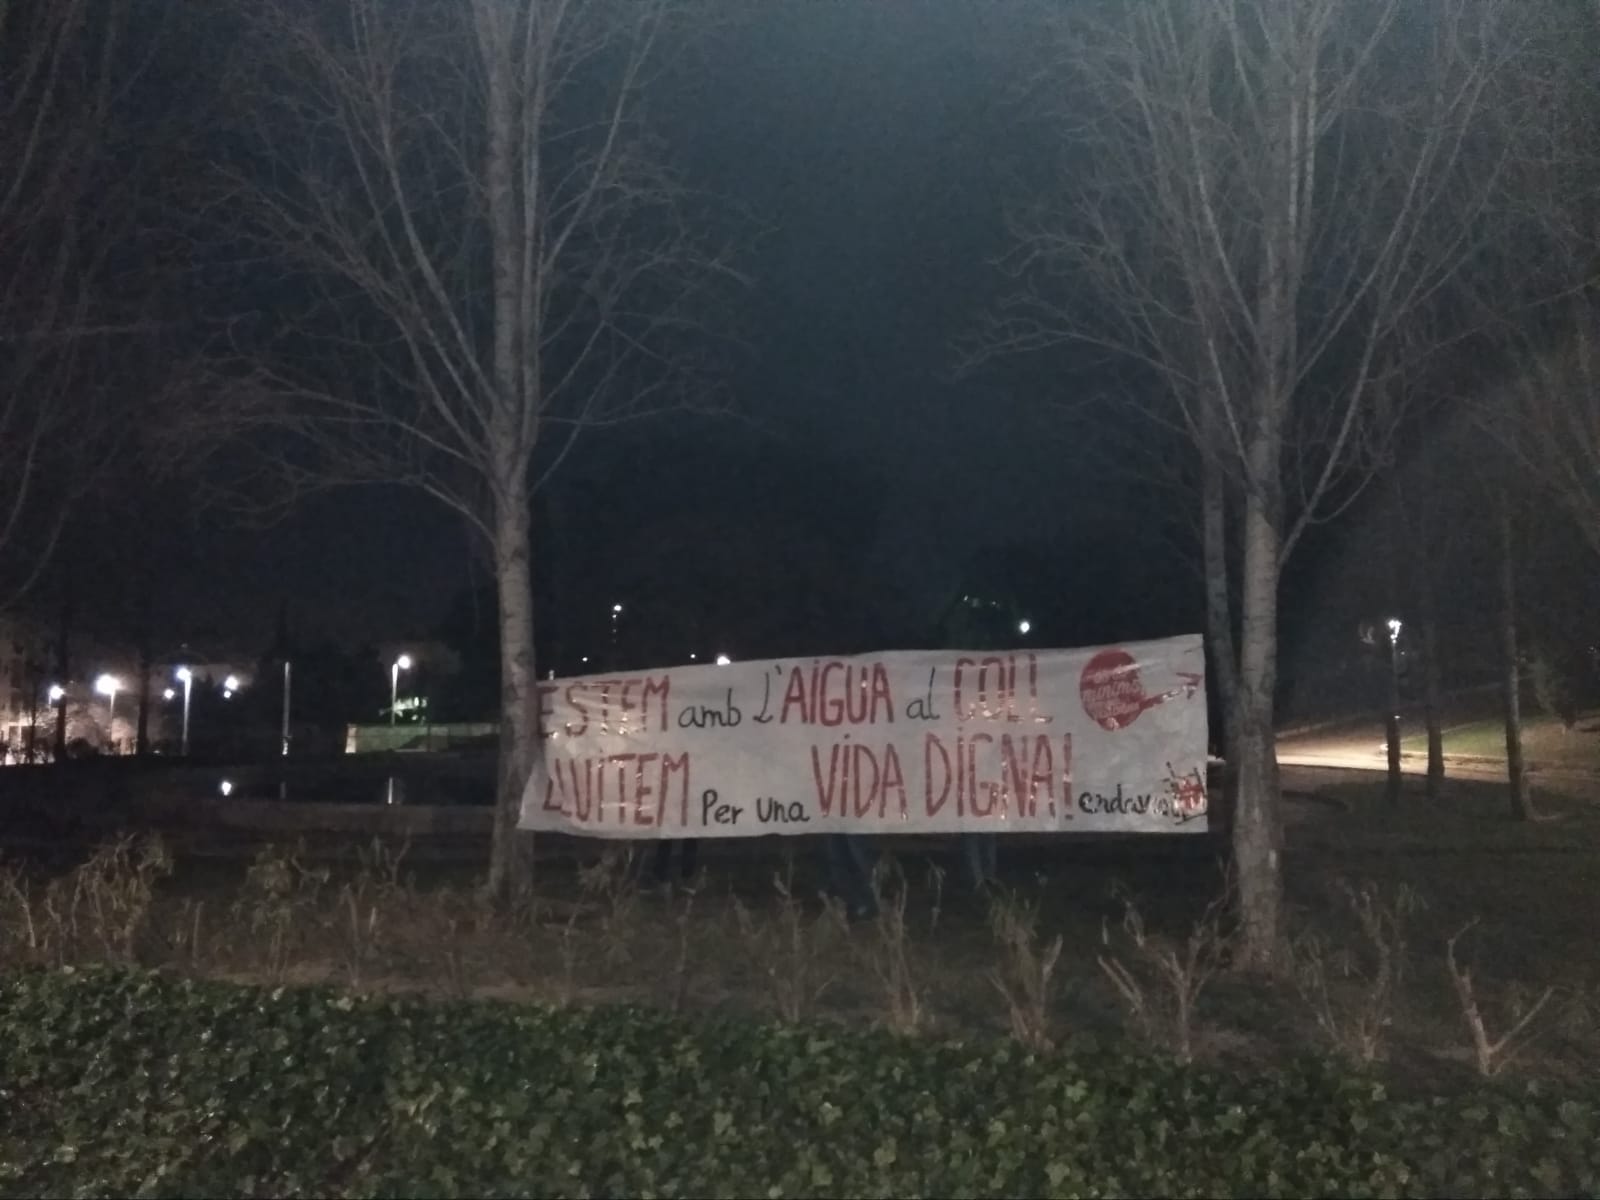 ESTEM amb L'AiGUA al COLL
LLUiTEM Per una ViDA DiGNA! endavant